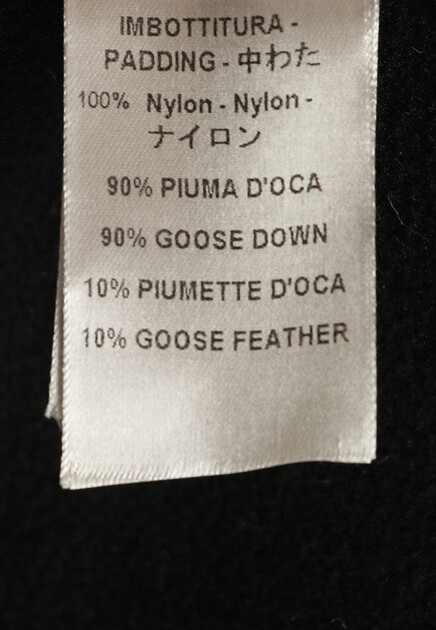 IMBOTTITURA -
PADDING - 中わた
100% Nylon - Nylon -
ナイロン
90% PIUMA D'OCA
90% GOOSE DOWN
10% PIUMETTE D'OCA
10% GOOSE FEATHER